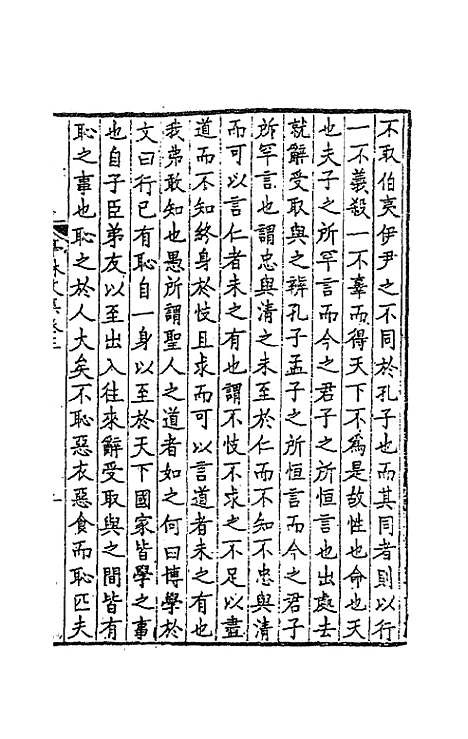 不取伯夷伊尹之不同於孔子也而其同者則以行
一不義殺一不辜而得天下不為是故性也命也天
也夫子之所罕言而今之君子之所恒言也出處去
就辭受取與之辨孔子孟子之所恒言而今之君子
所罕言也謂忠與清之未至於仁而不知不忠與清
而可以言仁者未之有也謂不忮不求之不足以盡
道而不知終身於忮且求而可以言道者未之有也
我弗敢知也愚所謂聖人之道者如之何曰博學於
文曰行己有恥自一身以至於天下國家皆學之事
也自子臣弟友以至出入往來辭受取與之間皆有
恥之事也恥之於人大矣不恥惡衣惡食而恥匹夫